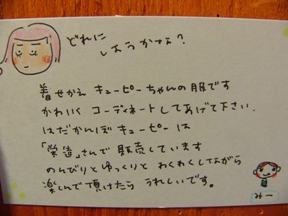 どれに
しようかなぁ?
着せかえ キューピーちゃんの服です
かわいく コーディネートしてあげて下さい
はだかんぼキューピーは
さんで販売しています
のんびりとゆっくりと わくわくしながら
楽しんで頂けたら うれしいです。
みー